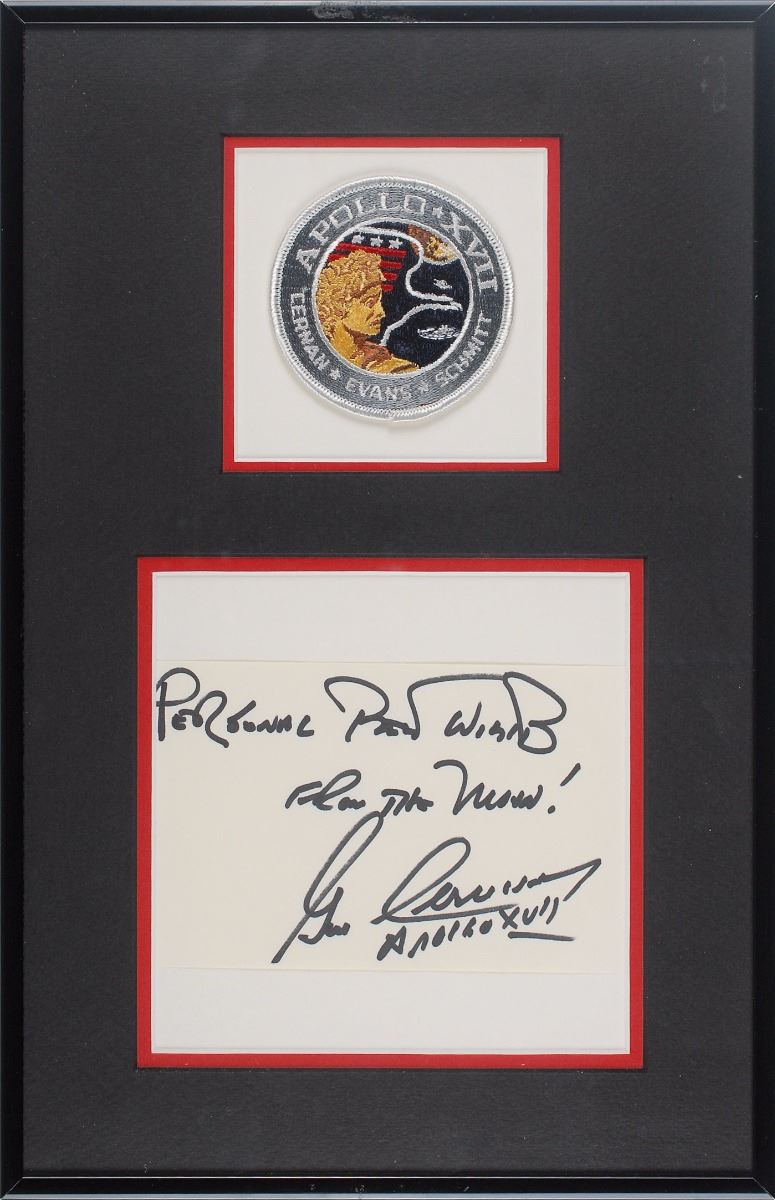 APOLLO ★ XVII
CERNAN ★ EVANS ★ SCHMITT
PERSONAL BEST WISHES
FROM THE MOON!
Gene Cernan
APOLLO XVII